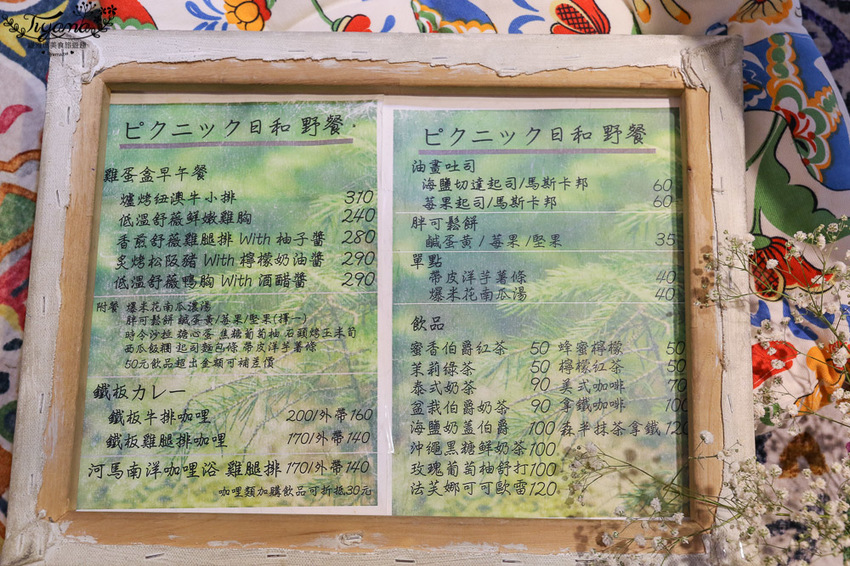 Tiyana
ピクニック日和 野餐
雞蛋盒早午餐
爐烤紐澳牛小排 310
低溫舒薇鮮嫩雞胸 240
香煎舒薇雞腿排 With 柚子醬 280
炙烤松阪豬 With 檸檬奶油醬 290
低溫舒薇鴨胸 With 酒醋醬 290
附餐 爆米花南瓜濃湯
胖可鬆餅 鹹蛋黃/莓果/堅果(擇一)
時令沙拉 糖心蛋 焦糖葡萄柚 石頭烤玉米筍
西瓜飯糰 起司麵包條 帶皮洋芋薯條
50元飲品超出金額可補差價
鐵板カレー
鐵板牛排咖哩 200/外帶160
鐵板雞腿排咖哩 170/外帶140
河馬南洋咖哩浴 雞腿排 170/外帶140
咖哩類加購飲品可折抵30元
ピクニック日和 野餐
油畫吐司
海鹽切達起司/馬斯卡邦 60
莓果起司/馬斯卡邦 60
胖可鬆餅
鹹蛋黃/莓果/堅果 35
單點
帶皮洋芋薯條 40
爆米花南瓜湯 40
飲品
蜜香伯爵紅茶 50 蜂蜜檸檬 50
茉莉綠茶 50 檸檬紅茶 50
泰式奶茶 90 美式咖啡 70
盆栽伯爵奶茶 90 拿鐵咖啡 100
海鹽奶蓋伯爵 100 森半抹茶拿鐵 120
沖繩黑糖鮮奶茶 100
玫瑰葡萄柚舒打 100
法芙娜可可歐雷 120